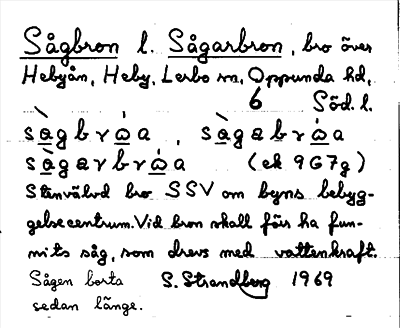 Sågbron l. Sågarbron, bro över
Hebyån, Heby, Lerbo sn, Oppunda hd,
6 Söd. l.
sàgbrω̇a, sàgabrω̇a
sàgarbrω̇a (ek 9G7g)
Stenvälvd bro SSV om byns bebyg-
gelsecentrum. Vid bron skall förr ha fun-
nits såg, som drevs med vattenkraft.
Sågen borta S. Strandberg 1969
sedan länge.